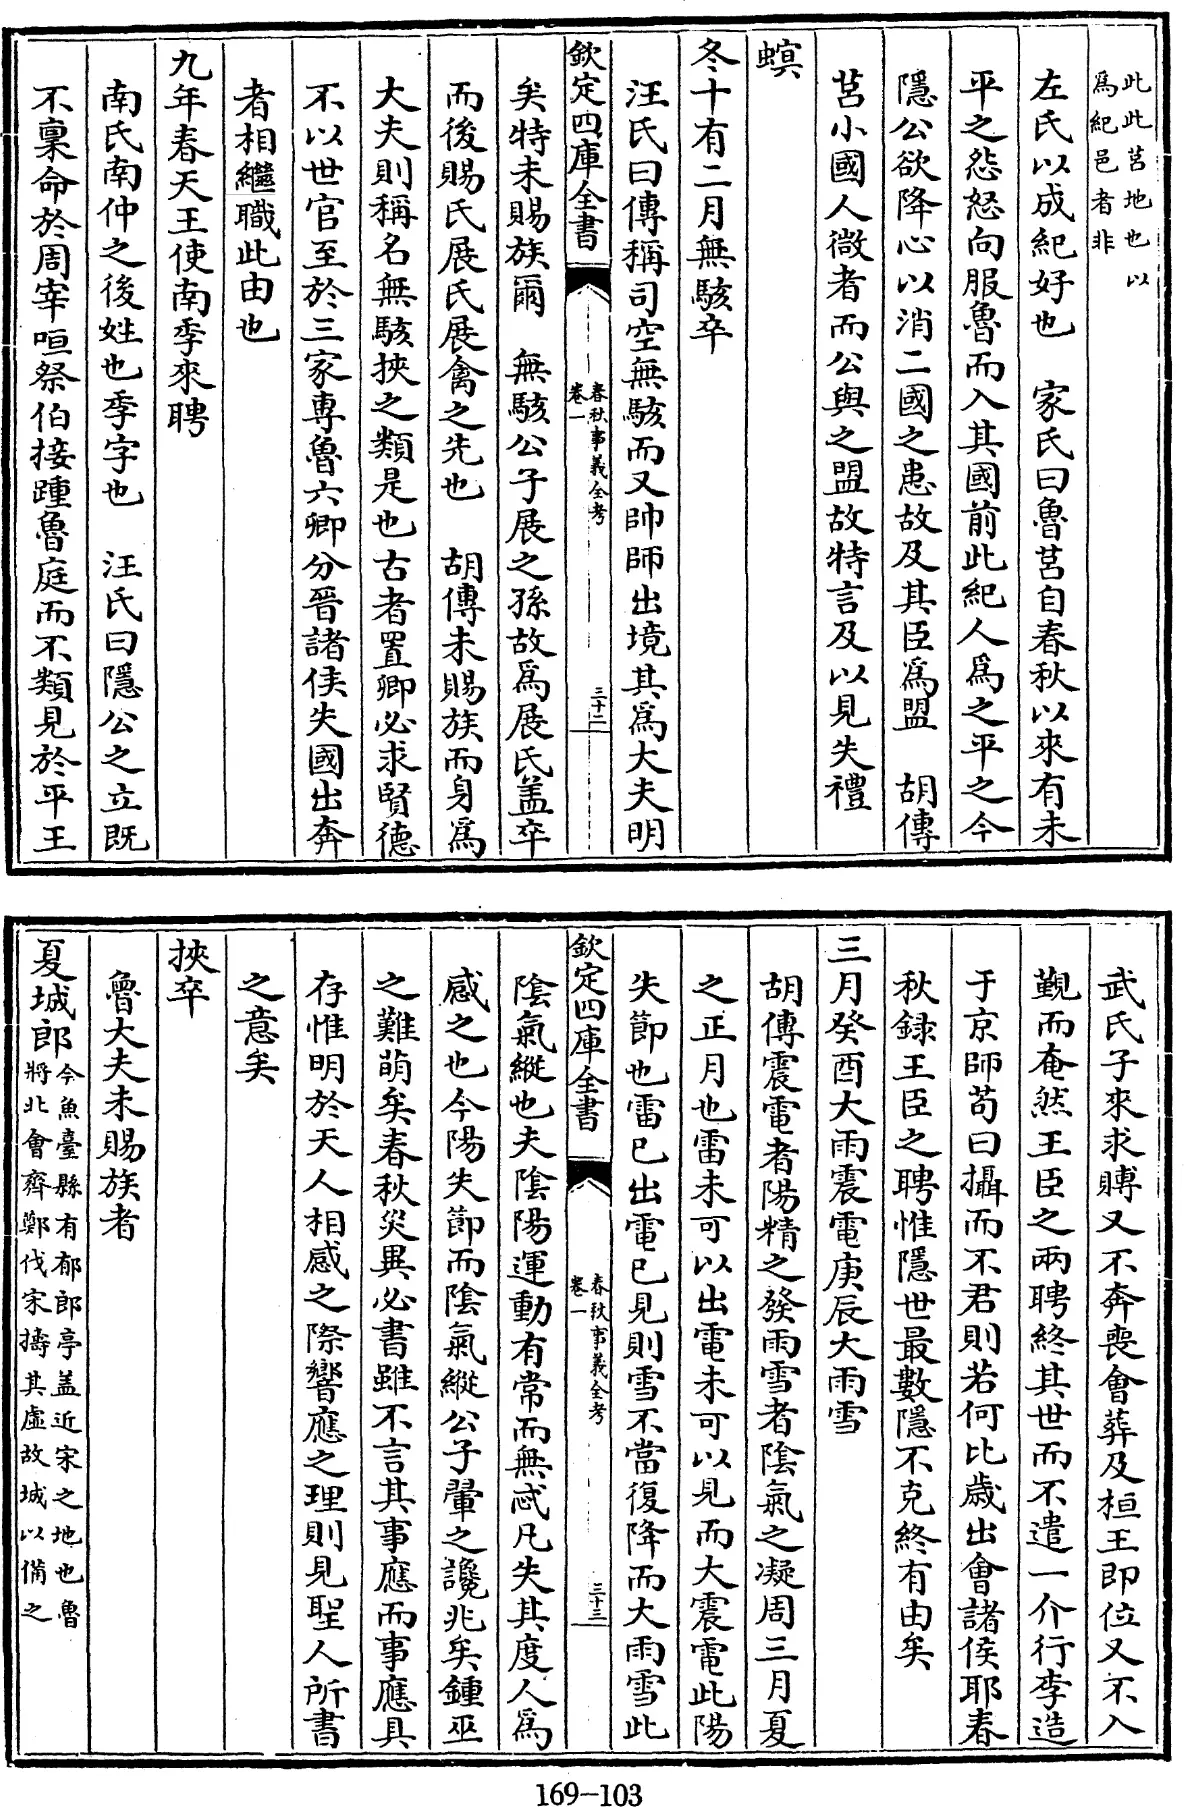 此此莒地也以
爲紀邑者非
左氏以成紀好也　家氏曰魯莒自春秋以來有未
平之怨怒向服魯而入其國前此紀人爲之平之今
隱公欲降心以消二國之患故及其臣爲盟　胡傳
莒小國人微者而公與之盟故特言及以見失禮
螟
冬十有二月無駭卒
汪氏曰傳稱司空無駭而又帥師出境其爲大夫明
欽定四庫全書
春秋事義全考
卷一
三十二
矣特未賜族爾　無駭公子展之孫故爲展氏盖卒
而後賜氏展氏展禽之先也　胡傳未賜族而身爲
大夫則稱名無駭挾之類是也古者置卿必求賢德
不以世官至於三家專魯六卿分晉諸侯失國出奔
者相繼職此由也
九年春天王使南季來聘
南氏南仲之後姓也季字也　汪氏曰隱公之立既
不稟命於周宰咺祭伯接踵魯庭而不類見於平王
武氏子來求賻又不奔喪會葬及桓王即位又不入
覲而奄然王臣之兩聘終其世而不遣一介行李造
于京師苟曰攝而不君則若何比歲出會諸侯耶春
秋録王臣之聘惟隱世最數隱不克終有由矣
三月癸酉大雨震電庚辰大雨雪
胡傳震電者陽精之發雨雪者陰氣之凝周三月夏
之正月也雷未可以出電未可以見而大震電此陽
失節也雷已出電已見則雪不當復降而大雨雪此
欽定四庫全書
春秋事義全考
卷一
三十三
陰氣縱也夫陰陽運動有常而無忒凡失其度人爲
感之也今陽失節而陰氣縱公子翬之讒兆矣鍾巫
之難萌矣春秋災異必書雖不言其事應而事應具
存惟明於天人相感之際響應之理則見聖人所書
之意矣
挾卒
魯大夫未賜族者
夏城郎今魚臺縣有郁郎亭盖近宋之地也魯
將北會齊鄭伐宋擣其虛故城以備之
169-103